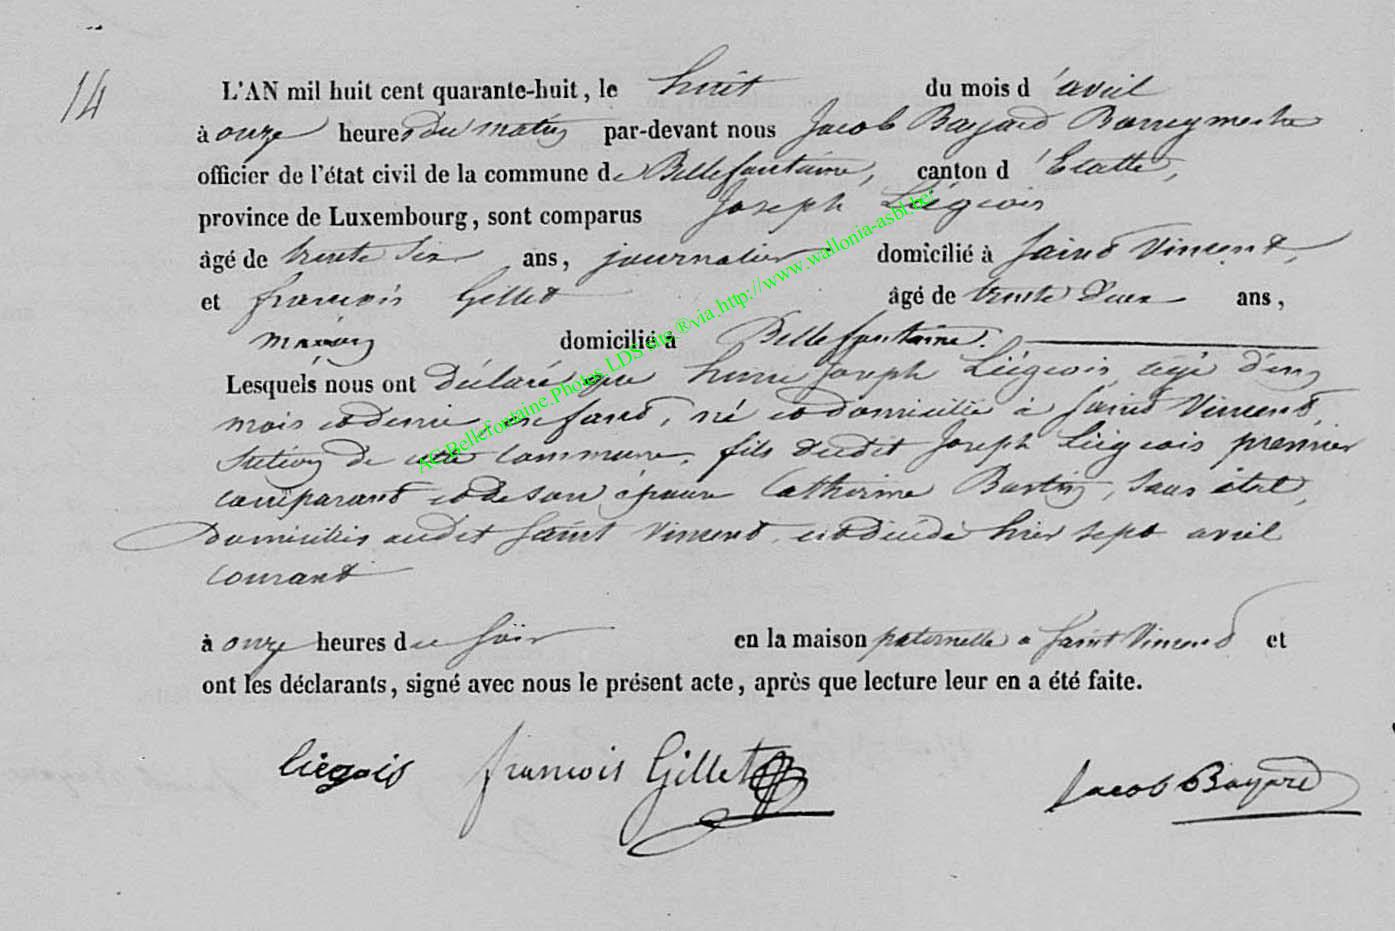 14
L'AN mil huit cent quarante-huit, le huit du mois d'avril
à onze heures du matin par-devant nous Jacob Bayard Bourgmestre
officier de l'état civil de la commune de Bellefontaine, canton d'Etalle,
province de Luxembourg, sont comparus Joseph Liégeois
âgé de trente six ans, journalier domicilié à Saint Vincent,
et françois Gillet âgé de trente deux ans,
domicilié à Bellefontaine.
Lesquels nous ont déclaré que Joseph Liégeois agé d'un
mois et demi, enfant, né et domicilié à Saint Vincent,
section de cette commune, fils dudit Joseph Liégeois premier
comparant et de son épouse Catherine Bastin, sans état,
domiciliés audit Saint Vincent, est décédé hier sept avril
courant
à onze heures du soir en la maison paternelle a Saint Vincent et
ont les déclarants, signé avec nous le présent acte, après que lecture leur en a été faite.
liégois françois Gillet Jacob Bayard
AC.Bellefontaine.Photos LDS sur ®via.http://www.wallonia-asbl.be/